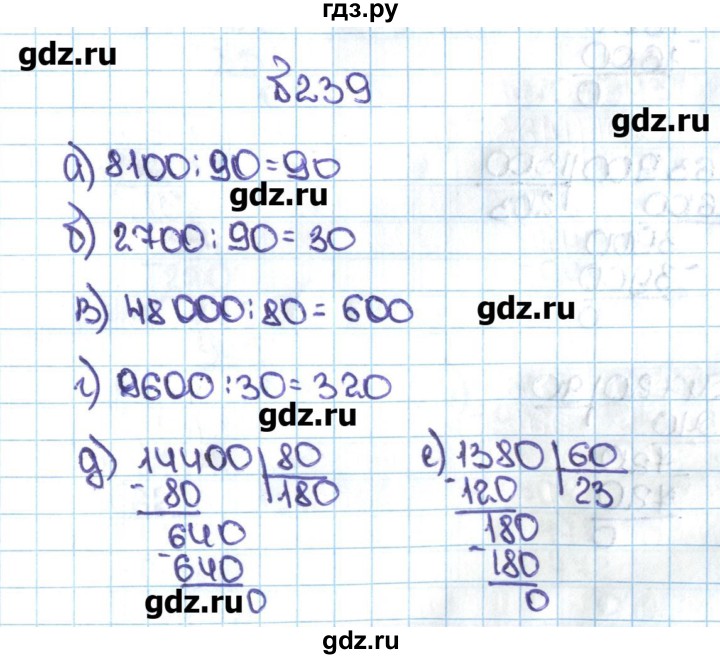 гдз.ру
gdz.ru
В239
gdz.ru
а) 8100:90=90
gdz.ru
б) 2700:90=30
в) 48000:80=600
gdz.ru
г) 9600:30=320
gdz.ru
д) 14400 80
- 80 180
640
- 640
0
gdz.ru
е) 1380 60
- 120 23
180
- 180
0
gdz.ru